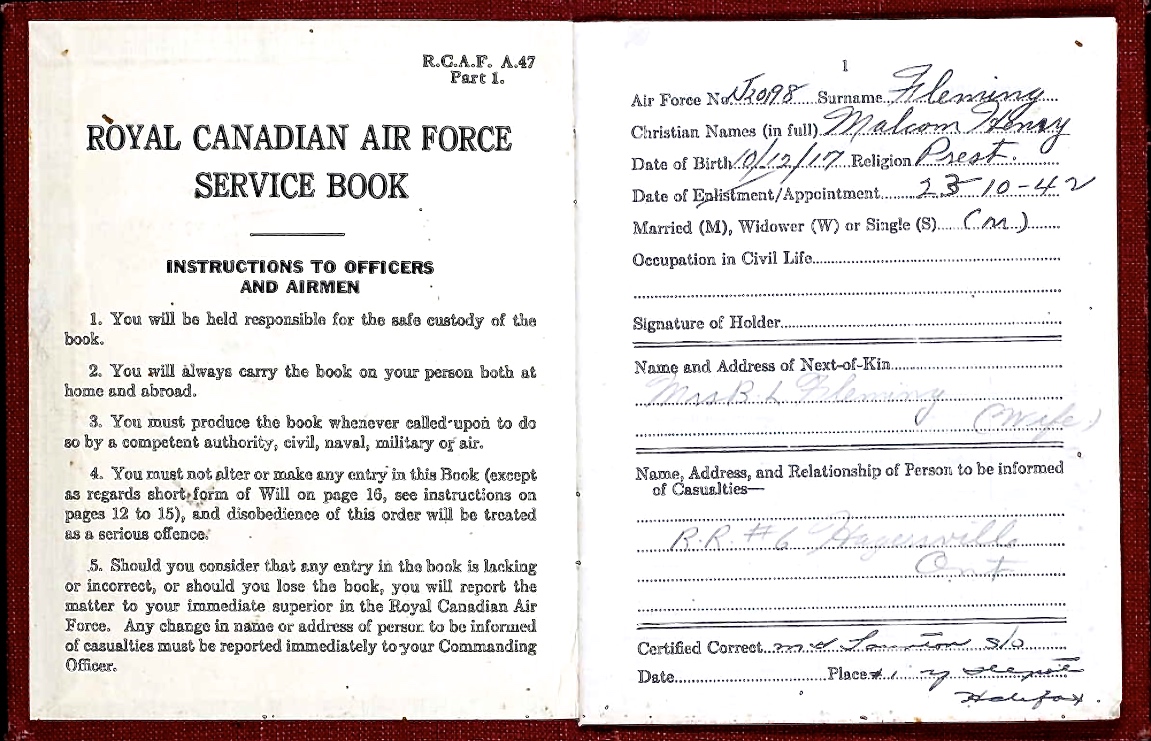 R.C.A.F. A.47
Part 1.
ROYAL CANADIAN AIR FORCE
SERVICE BOOK
INSTRUCTIONS TO OFFICERS
AND AIRMEN
1. You will be held responsible for the safe custody of the
book.
2. You will always carry the book on your person both at
home and abroad.
3. You must produce the book whenever called upon to do
so by a competent authority, civil, naval, military or air.
4. You must not alter or make any entry in this Book (except
as regards short form of Will on page 16, see instructions on
pages 12 to 15), and disobedience of this order will be treated
as a serious offence.
5. Should you consider that any entry in the book is lacking
or incorrect, or should you lose the book, you will report the
matter to your immediate superior in the Royal Canadian Air
Force. Any change in name or address of person to be informed
of casualties must be reported immediately to your Commanding
Officer.
1
Air Force No. Surname Fleming
Christian Names (in full) Malcom Henry
Date of Birth 10/12/17 Religion Presb.
Date of Enlistment/Appointment 23-10-42
Married (M), Widower (W) or Single (S) (M)
Occupation in Civil Life
Signature of Holder
Name and Address of Next-of-Kin
Mrs B. L Fleming
(Wife)
Name, Address, and Relationship of Person to be informed
of Casualties—
R.R. #6 Hagersville
Ont
Certified Correct S/O
Date Place #1 Y Depot
Halifax.